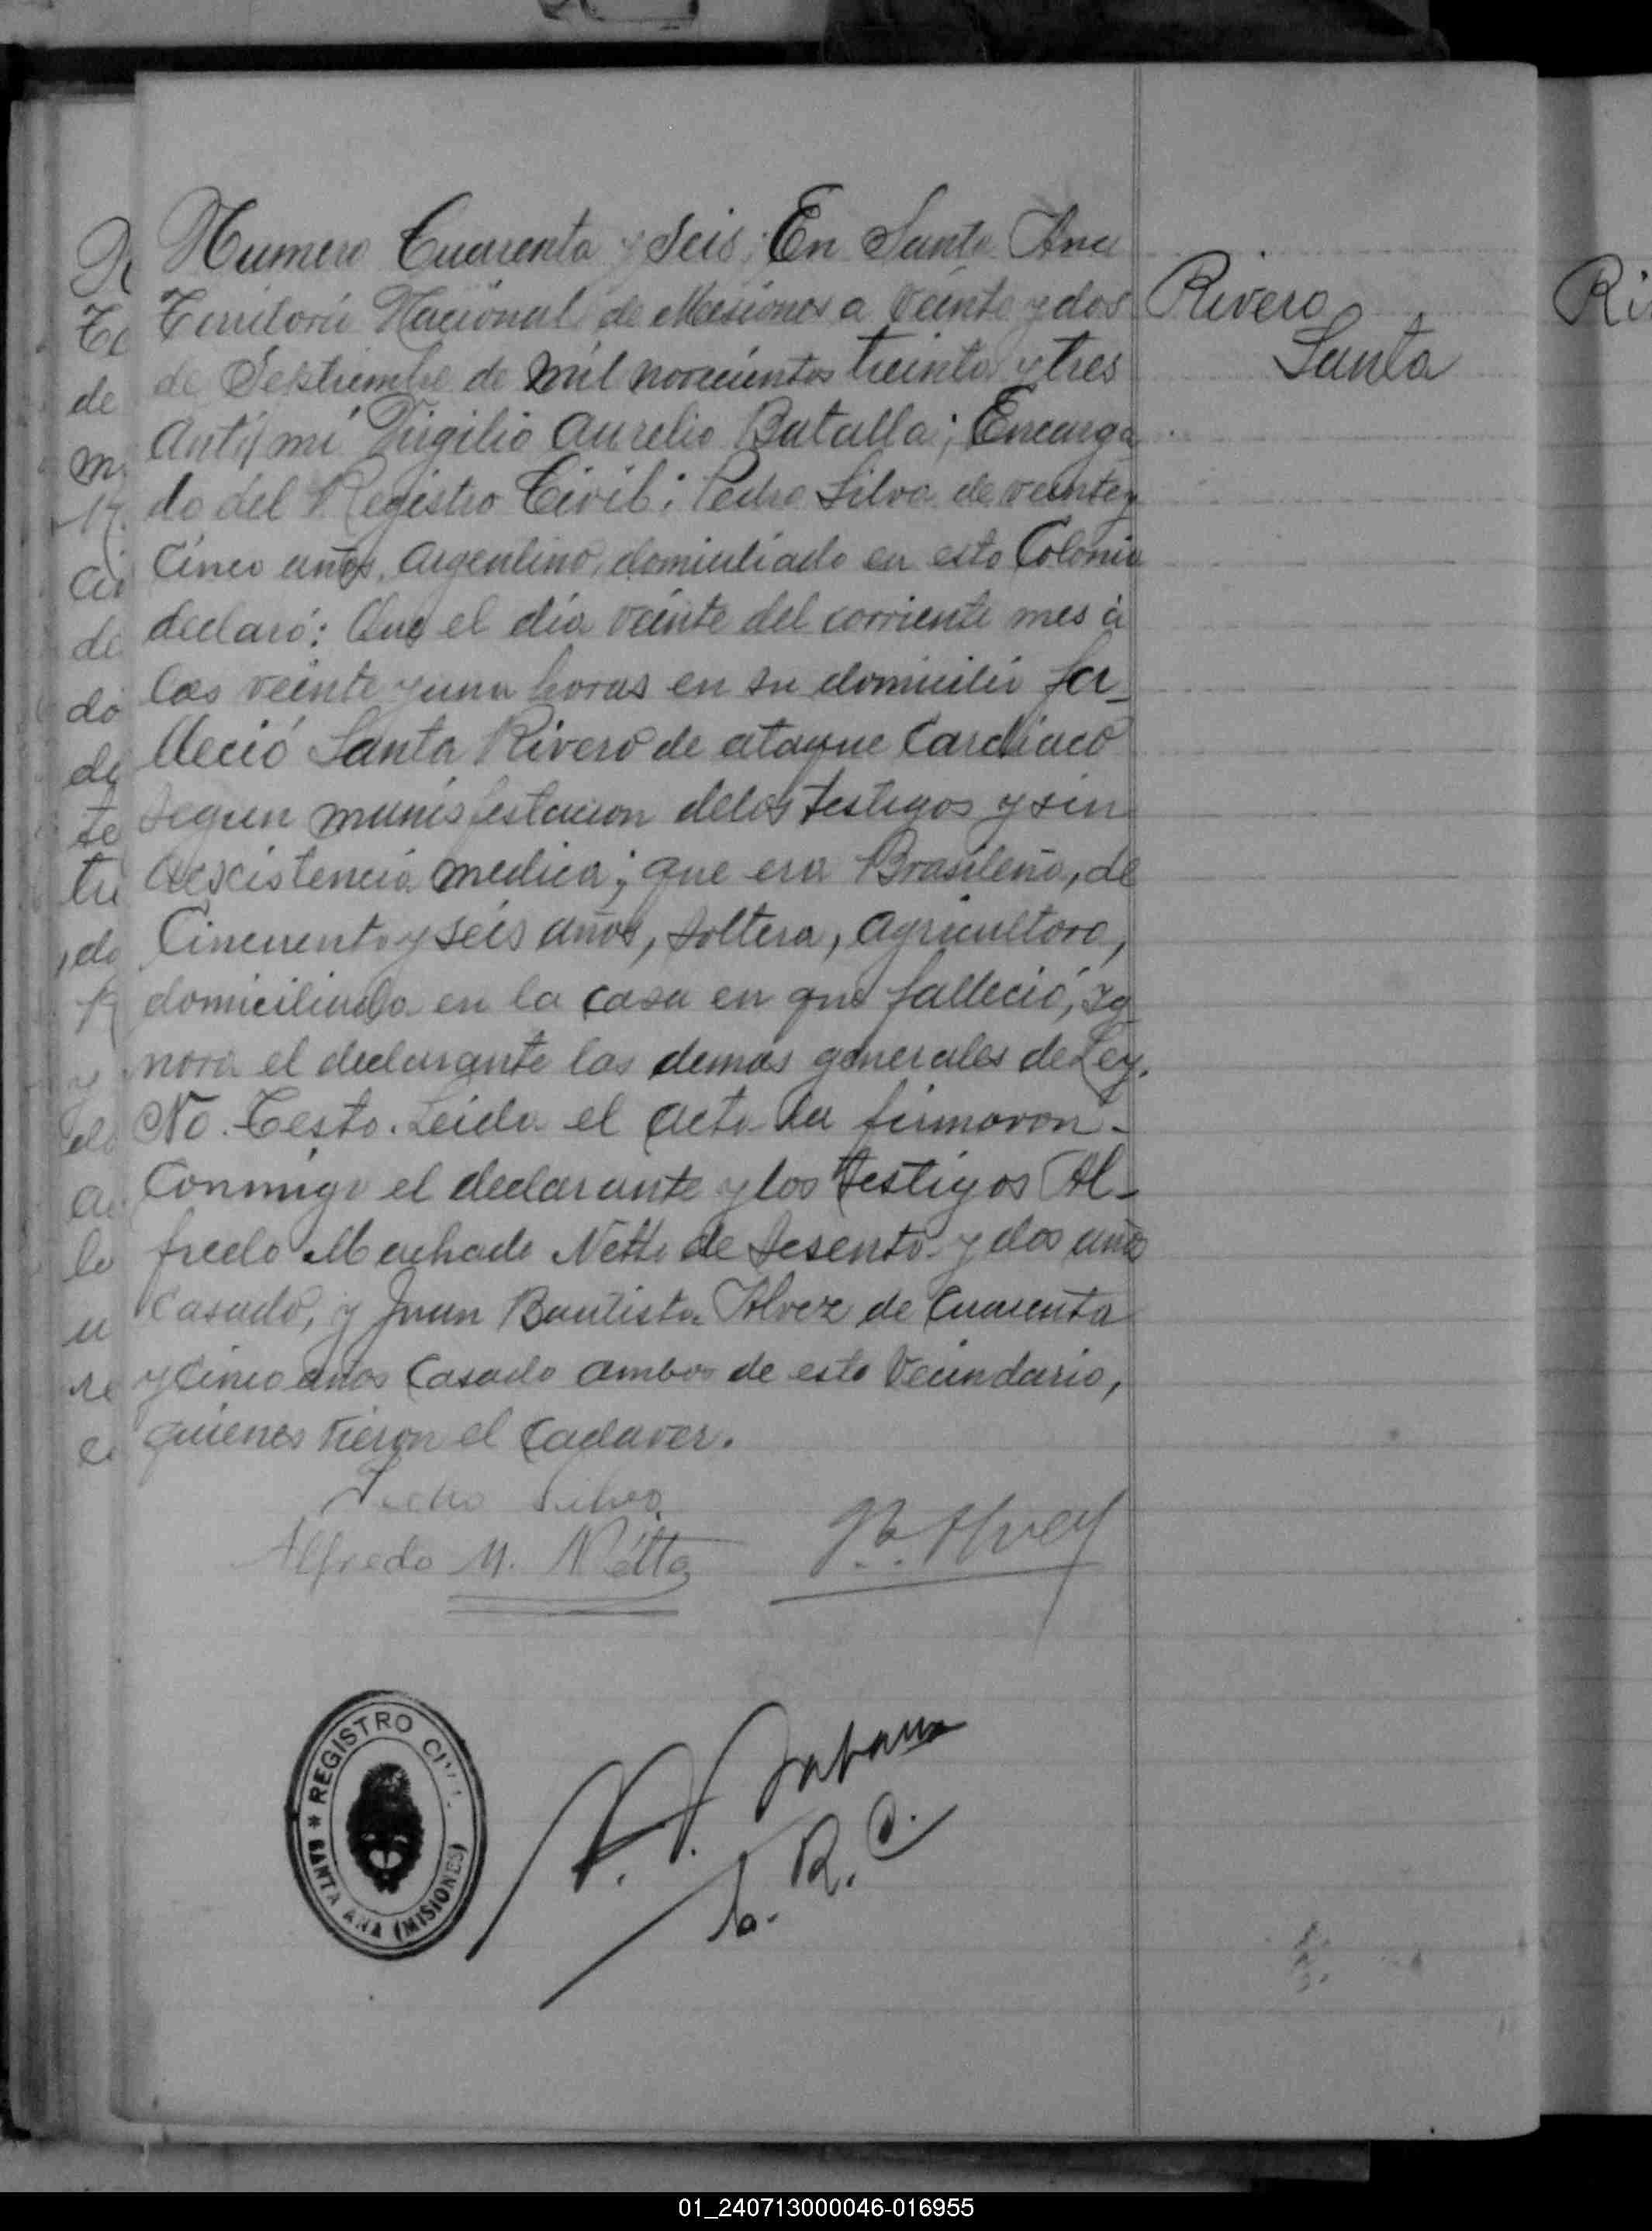 Numero Cuarenta y Seis, En Santa Ana
Territorio Nacional de Misiones a Veinte y dos
de Septiembre de mil novecientos treinta y tres
Anti mi Virgilio Aurelio Batalla; Encarga
do del Registro Civil; Pedro Silva de veinte y
Cinco años, Argentino, domiciliado en esta Colonia
declaró: Que el día veinte del corriente mes à
las veinte y una horas en su domicilio fa-
lleció Santa Rivero de ataque Cardíaco
segun manisfestacion de los testigos y sin
aescistencia medica; que era Brasileña, de
Cincuenta y seis años, soltera, agricultora,
domiciliada en la casa en que falleció, Ig-
nora el declarante las demas generales de Ley.
No. Testo. Leida el acta la firmaron-
Conmigo el declarante y los testigos Al-
fredo Machado Netto de sesenta y dos años
casado, y Juan Bautista Alvez de Cuarenta
y Cinco años Casado ambos de esta Vecindario,
quienes vieron el Cadaver.
Pedro Silva
Alfredo M. Nétto
Alvez
R. C.
Rivero
Santa
Ri
de
m
do
de
te
tu
do
y
lo
u
re
REGISTRO CIVIL
* SANTA ANA (MISIONES)
01_240713000046-016955